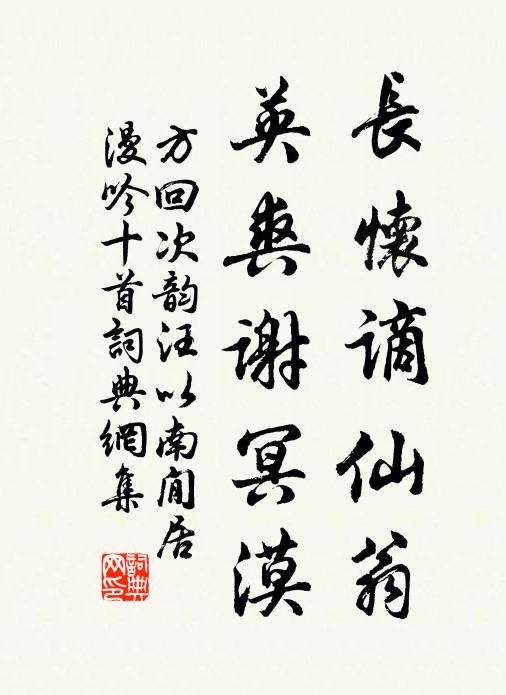 長懷謫仙翁
英爽謝冥漠
方回次韵汪以南閒居
漫吟十首詞典網集
詞典網印